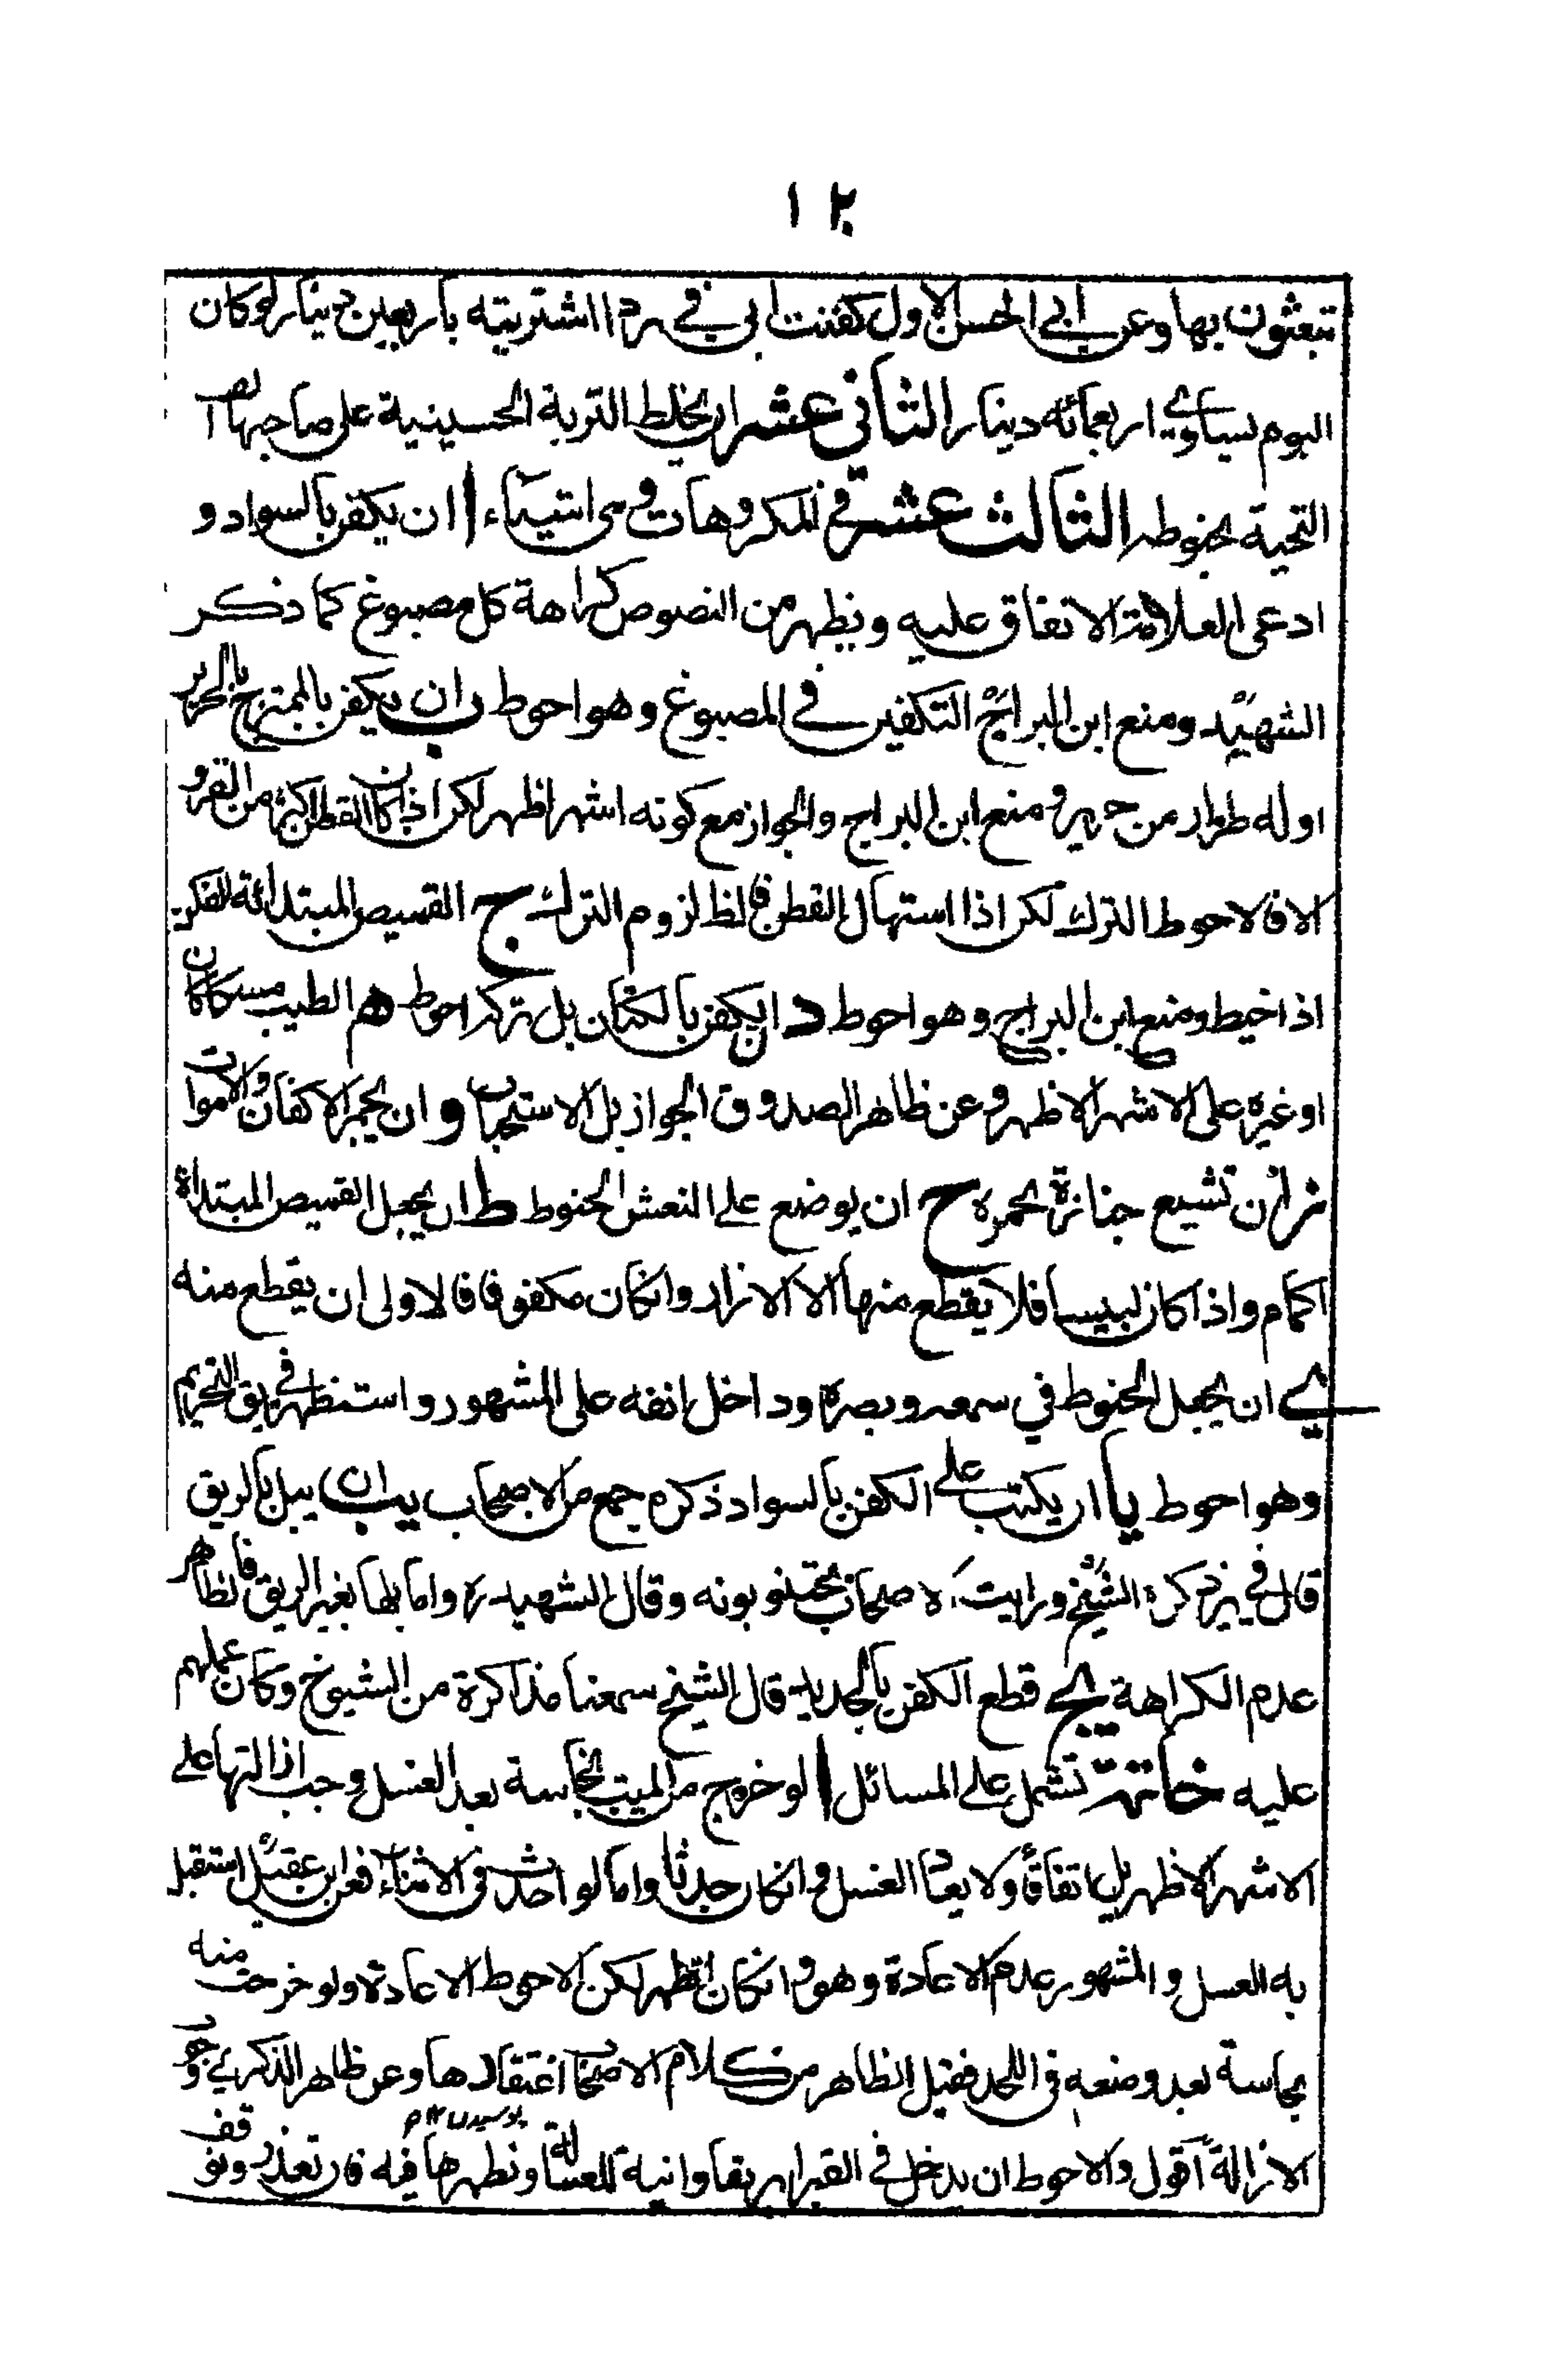 ١٢
تبعثون بها وعن ابي الحسن الاول كفنت ابي في برد اشتريته باربعين دينار لو كان
اليوم يساوي اربعمائه دينار الثاني عشر ان يخلط التربة الحسينية على صاحبها
التحية بحنوطه الثالث عشر في المكروهات وهي اشياء ا ان يكفن بالسواد و
ادعى العلامة الاتفاق عليه ويظهر من النصوص كراهة كل مصبوغ كما ذكر
الشهيد ومنع ابن البراج التكفين في المصبوغ وهو احوط ب ان يكفن بالممتزج بالحرير
او له طراز من حرير ومنع ابن البراج والجواز مع كونه اشهر اظهر لكن اذا كان القطن اكثر من القز و
الا فالاحوط الترك لكن اذا استهلك القطن فالظ لزوم الترك ج القميص المبتدائة للكفن
اذا خيط ومنع ابن البراج وهو احوط د ان يكفن بالكتان بل تركه احوط ه الطيب مسكا كان
او غيره على الاشهر الاظهر وعن ظاهر الصدوق الجواز بل الاستحباب و ان يجمر الاكفان والاموات
ز ان تشيع جنازة بمجمره ح ان يوضع على النعش الحنوط ط ان يجعل القميص المبتداة
اكمام واذا كان لبيسا فلا يقطع منها الا الازرار وانكان مكفوفا فالاولى ان يقطع منه
ي ان يجعل الحنوط في سمعه وبصره وداخل انفه على المشهور واستظهر فريق التحريم
وهو احوط يا ان يكتب على الكفن بالسواد ذكره جمع من الاصحاب يب ان يبل بالريق
قال في ذكره الشيخ ورايت الاصحاب يجتنبونه وقال الشهيد ره واما بلها بغير الريق فالظاهر
عدم الكراهة يج قطع الكفن بالحديد قال الشيخ سمعنا مذاكرة من الشيوخ وكان عملهم
عليه خاتمة تشمل على المسائل ا لو خروج من الميت نجاسة بعد الغسل وجب ازالتها على
الاشهر الاظهر بل اتفاقا ولا يعاد الغسل وانكان حدثا واما لو احدث في الاثناء فعن ابن عقيل استقبل
به الغسل والمشهور عدم الاعادة وهو وانكان اظهر لكن الاحوط الاعادة ولو خرجت منه
نجاسة بعد وضعه في اللحد فقيل الظاهر من كلام الاصحاب اغتفارها وعن ظاهر الذكرى وجوب
الازالة اقول والاحوط ان يدخل في القبر ابريقا وانية للغسالة وتطهرها فيه فان تعذر وتوقف